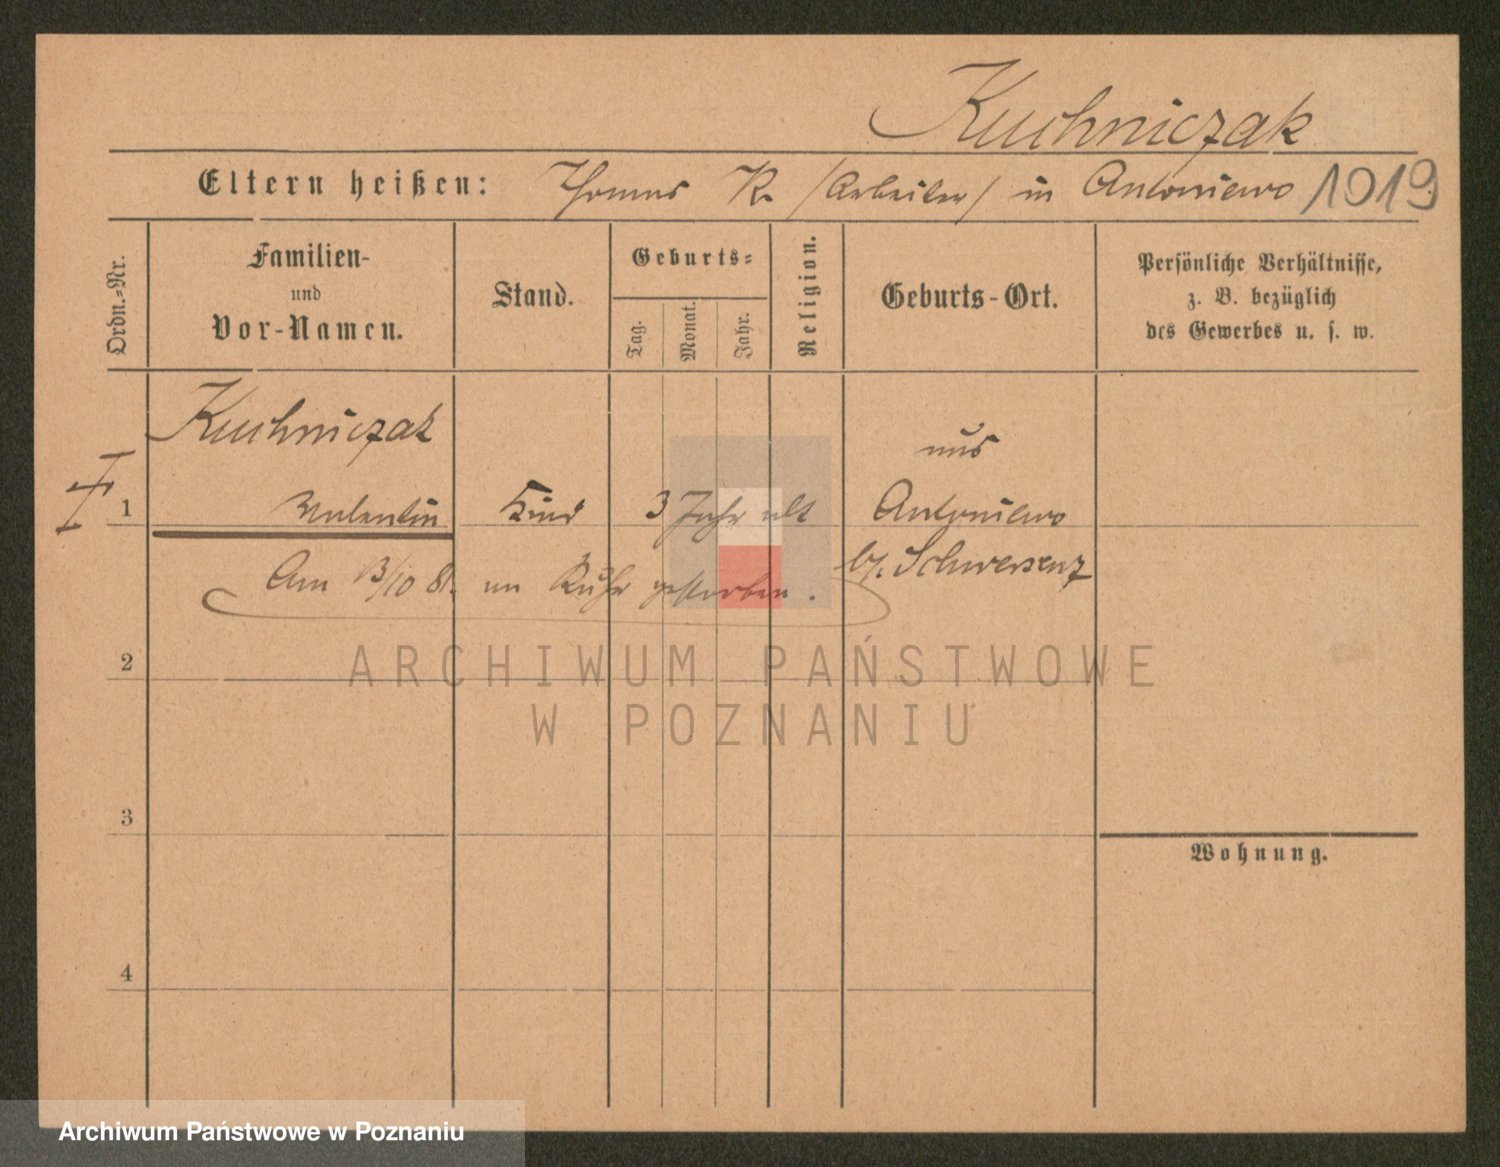 Kuchniczak
Eltern heißen: Thomas K. /Arbeiter/ in Antoniewo 1019
Ordn.-Nr.
Familien-
und
Vor-Namen.
Stand.
Geburts-
Tag.
Monat.
Jahr.
Religion.
Geburts-Ort.
Persönliche Verhältnisse,
z. B. bezüglich
des Gewerbes u. s. w.
Kuchniczak
aus
1 Valentin Kind 3 Jahr alt Antoniewo
b/. Schwersenz
Am 13/10 81. an Ruhr gestorben.
2
ARCHIWUM PAŃSTWOWE
W POZNANIU
3
Wohnung.
4
Archiwum Państwowe w Poznaniu